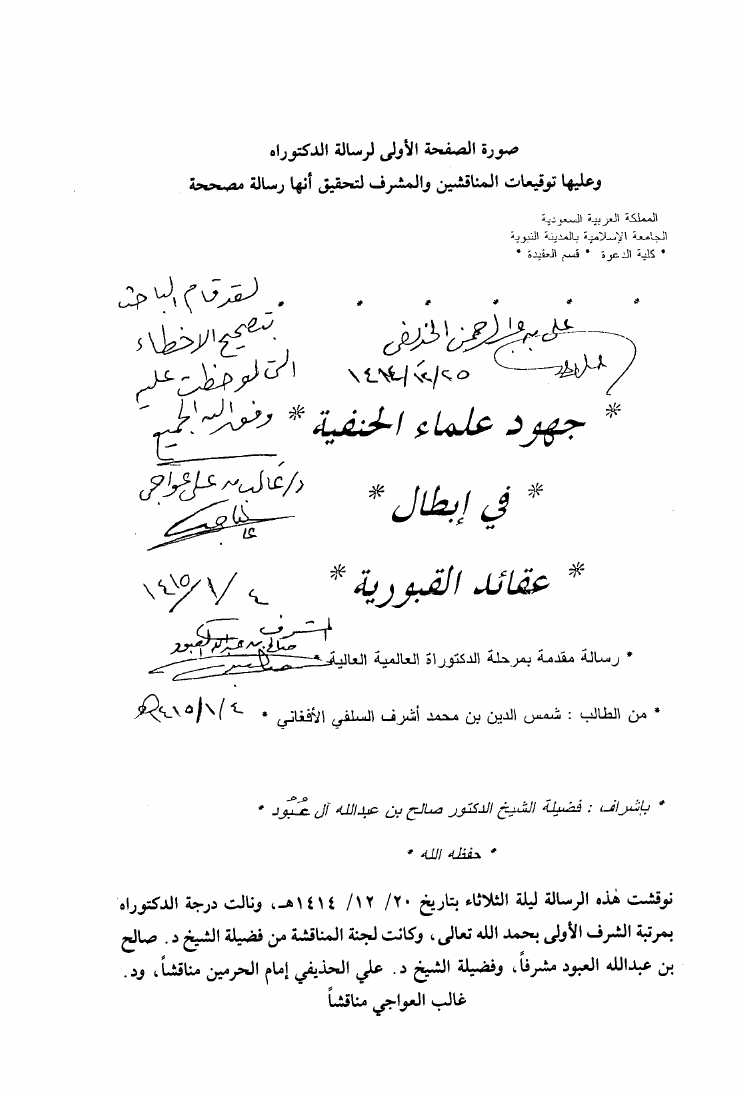 صورة الصفحة الأولى لرسالة الدكتوراه
وعليها توقيعات المناقشين والمشرف لتحقيق أنها رسالة مصححة
المملكة العربية السعودية
الجامعة الإسلامية بالمدينة النبوية
* كلية الدعوة * قسم العقيدة *
لقد قام الباحث
بتصحيح الاخطاء
التى لوحظت عليه
وفق الله الجميع
د/غالب بن على عواجى
١٤١٥/١/٤
على بن عبد الرحمن الحذيفي
١٤١٤/١٢/٢٥
* جهود علماء الحنفية *
* في إبطال *
* عقائد القبورية *
المشرف
صالح بن عبد الله العبود
* رسالة مقدمة بمرحلة الدكتوراة العالمية العالية *
* من الطالب : شمس الدين بن محمد أشرف السلفي الأفغاني *
١٤١٥/١/٤
* بإشراف : فضيلة الشيخ الدكتور صالح بن عبدالله آل عُبُود *
* حفظه الله *
نوقشت هٰذه الرسالة ليلة الثلاثاء بتاريخ ٢٠/ ١٢/ ١٤١٤هـ، ونالت درجة الدكتوراه
بمرتبة الشرف الأولى بحمد الله تعالى، وكانت لجنة المناقشة من فضيلة الشيخ د. صالح
بن عبدالله العبود مشرفاً، وفضيلة الشيخ د. علي الحذيفي إمام الحرمين مناقشاً، ود.
غالب العواجي مناقشاً